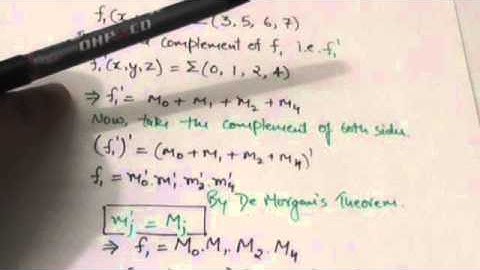 f₁(x (3, 5, 6, 7)
complement of f₁ i.e f₁'
f₁(x,y,z) = Σ(0, 1, 2, 4)
⇒ f₁' = m₀ + m₁ + m₂ + m₄
Now, take the complement of both sides.
(f₁')' = (m₀ + m₁ + m₂ + m₄)'
f₁ = m₀'. m₁'. m₂'. m₄'
By De Morgan's Theorem.
m'ⱼ = Mⱼ
⇒ f₁ = M₀. M₁. M₂. M₄